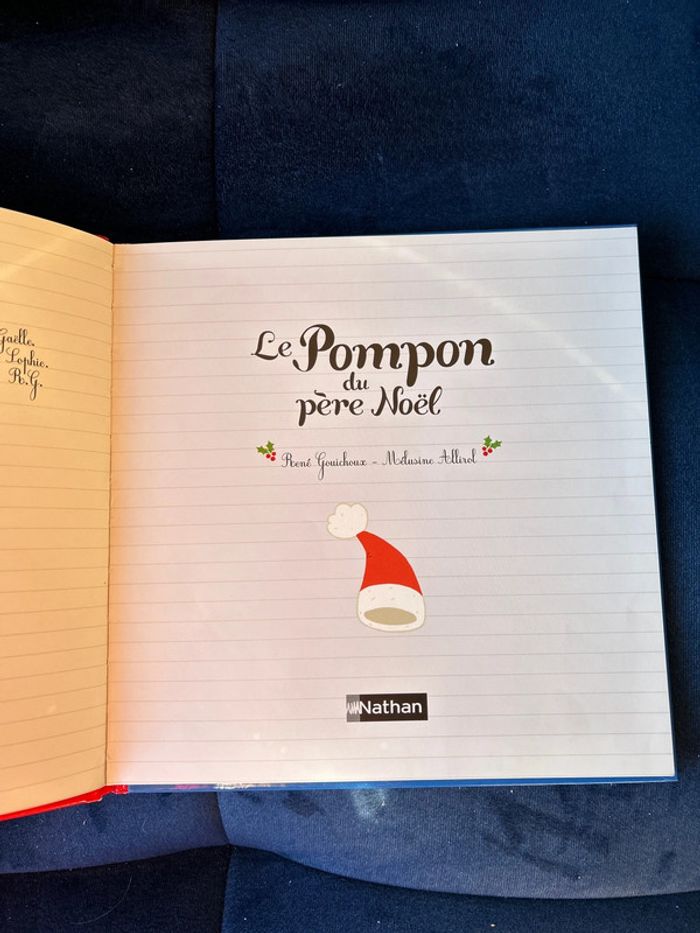 Gaëlle.
Sophie.
R.G.
Le Pompon
du
père Noël
René Gouichoux - Mélusine Allirol
Nathan